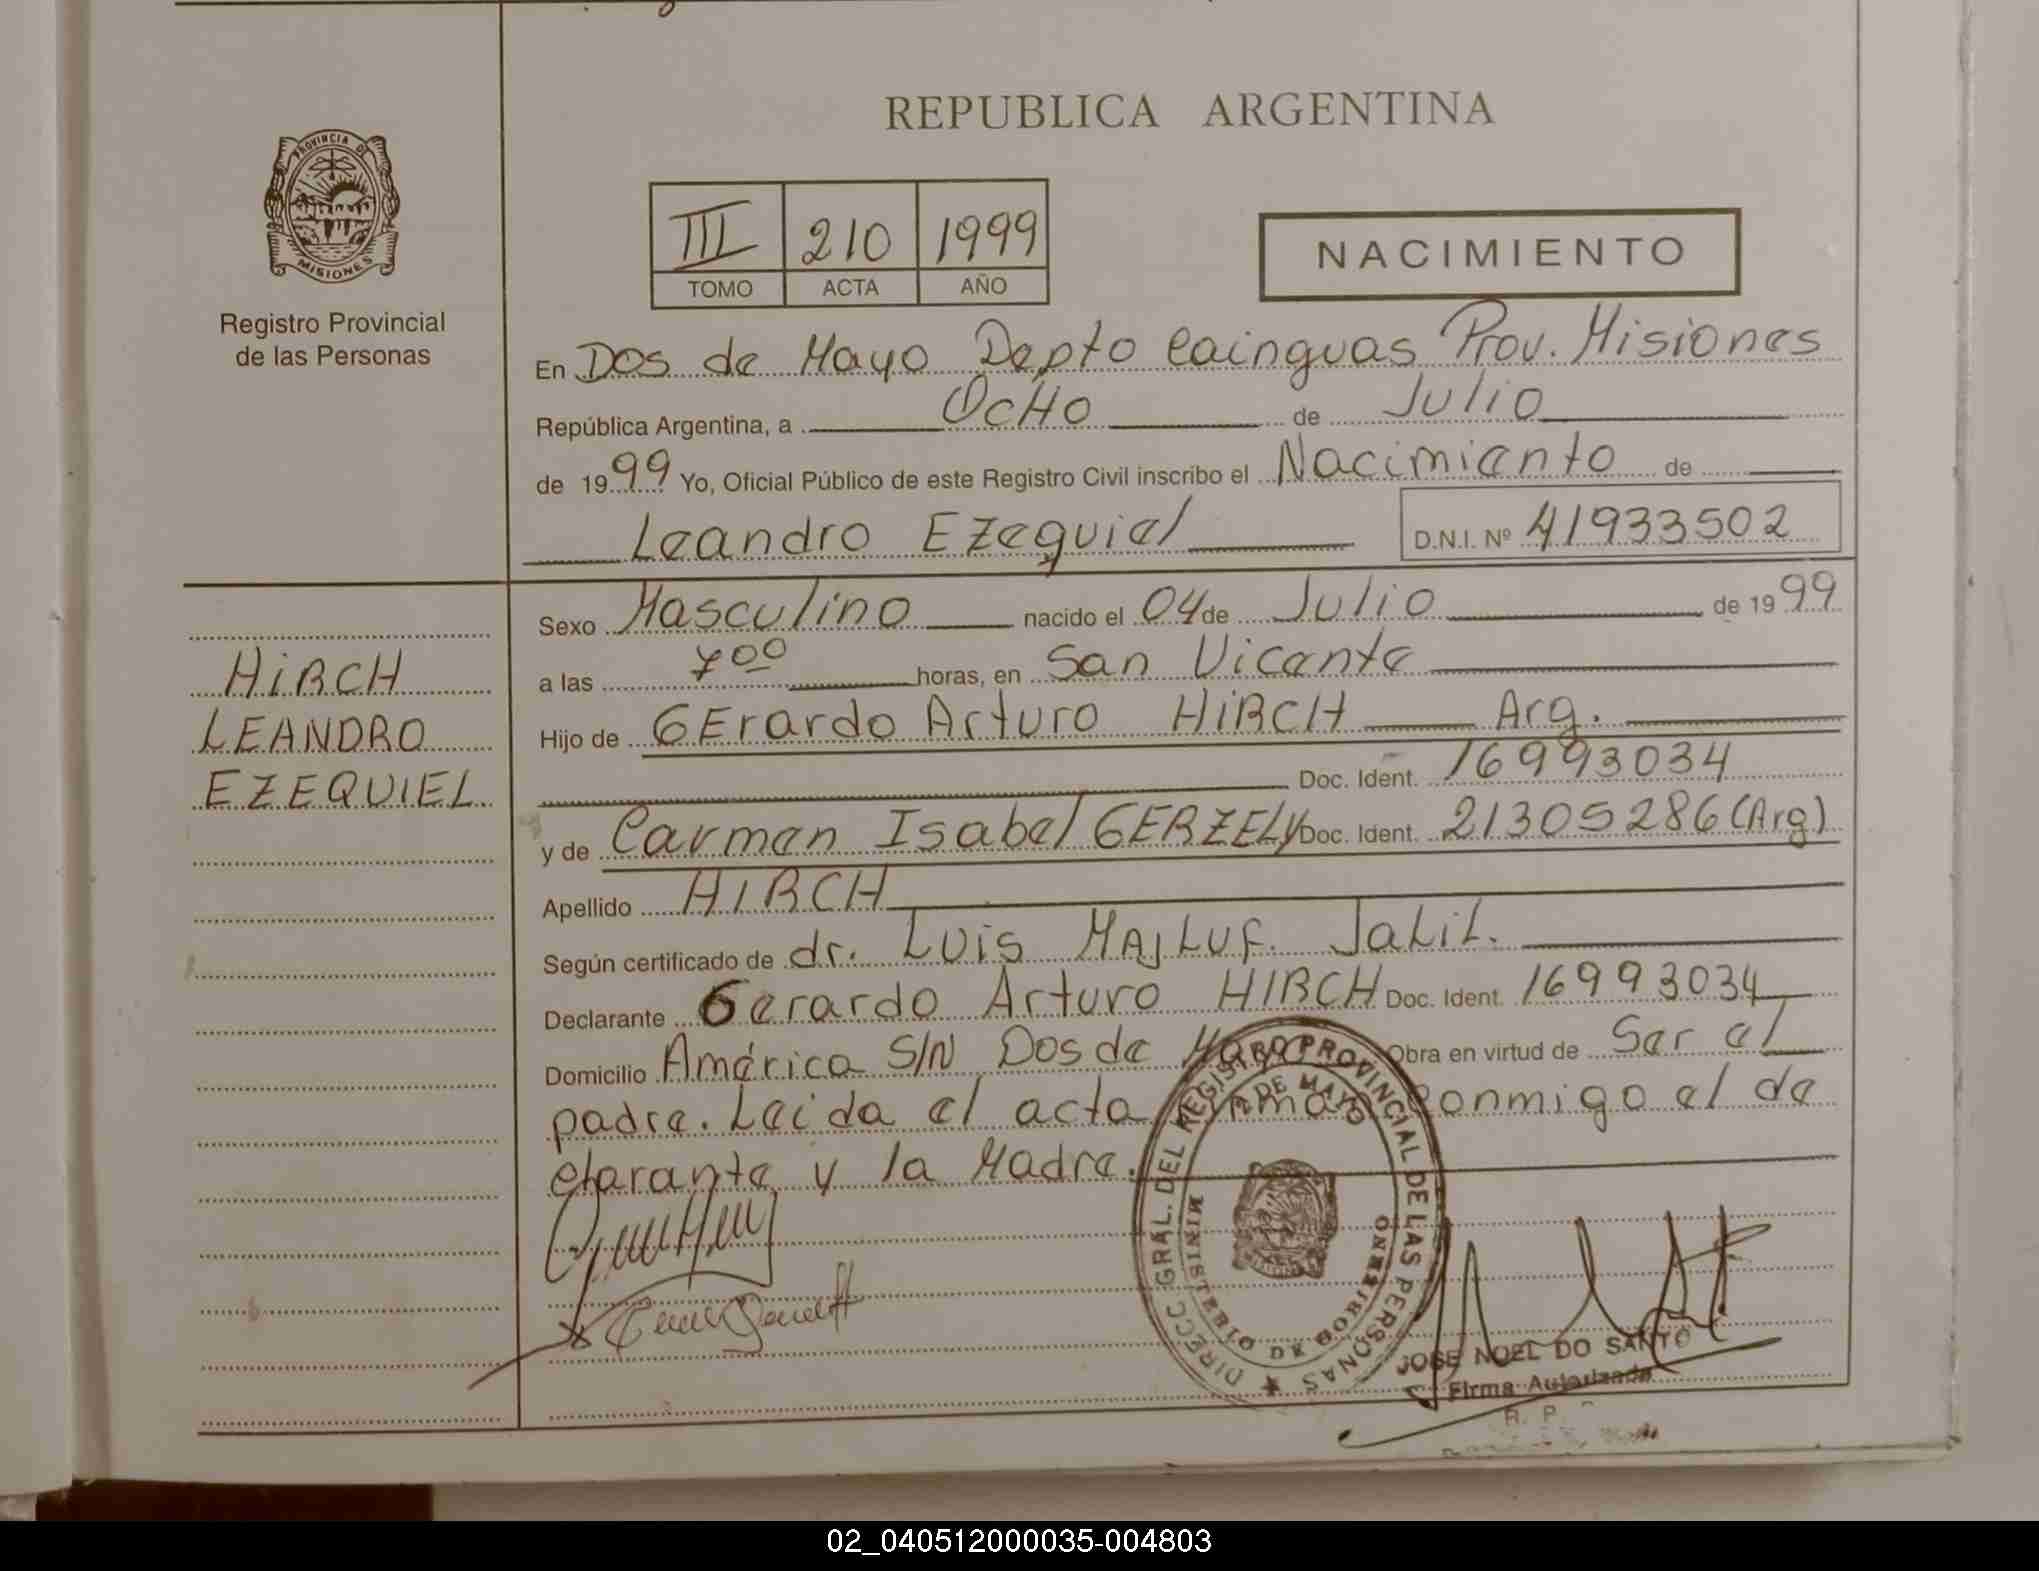 REPUBLICA ARGENTINA
PROVINCIA DE
MISIONES
Registro Provincial
de las Personas
III 210 1999
TOMO ACTA AÑO
NACIMIENTO
En Dos de Mayo Depto Cainguas Prov. Misiones
República Argentina, a OcHo de Julio
de 1999 Yo, Oficial Público de este Registro Civil inscribo el Nacimiento de
Leandro Ezequiel D.N.I. Nº 41933502
HiRCH
LEANDRO
EZEQUIEL
Sexo Masculino nacido el 04 de Julio de 1999
a las 7 00 horas, en San Vicente
Hijo de GErardo Arturo HiRCH Arg.
Doc. Ident. 16993034
y de Carmen Isabel GERZELY Doc. Ident. 21305286 (Arg)
Apellido HIRCH
Según certificado de dr. Luis MAjLuf. JaLiL.
Declarante Gerardo Arturo HIRCH Doc. Ident. 16993034
Domicilio América S/N Dos de Mayo Obra en virtud de Ser el
padre. Leida el acta firman conmigo el de
clarante y la Madre.
DIRECC. GRAL. DEL REGISTRO PROVINCIAL DE LAS PERSONAS
2 DE MAYO
MINISTERIO DE GOBIERNO
JOSE NOEL DO SANTO
Firma Autorizada
R. P.
02_040512000035-004803